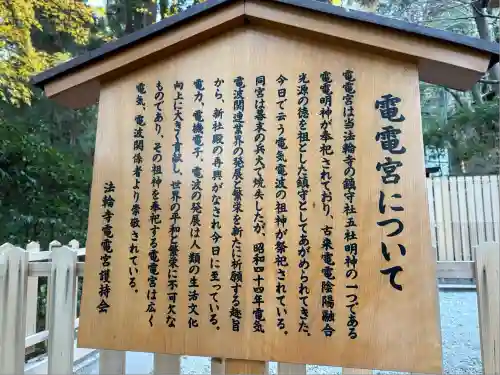 電電宮について
電電宮は当法輪寺の鎮守社五社明神の一つである
電電明神が奉祀されており、古来電電陰陽融合
光源の徳を祖とした鎮守としてあがめられてきた。
今日で云う電気電波の祖神が祭祀されている。
同宮は幕末の兵火で焼失したが、昭和四十四年電気
電波関連業界の発展と繁栄を新たに祈願する趣旨
から、新社殿の再興がなされ今日に至っている。
電力、電機電子、電波の発展は人類の生活文化
向上に大きく貢献し、世界の平和と繁栄に不可欠な
ものであり、その祖神を奉祀する電電宮は広く
電気、電波関係者より崇敬されている。
法輪寺電電宮護持会